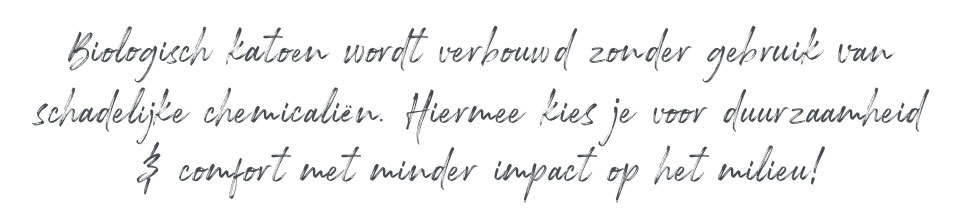 Biologisch katoen wordt verbouwd zonder gebruik van
schadelijke chemicaliën. Hiermee kies je voor duurzaamheid
& comfort met minder impact op het milieu!